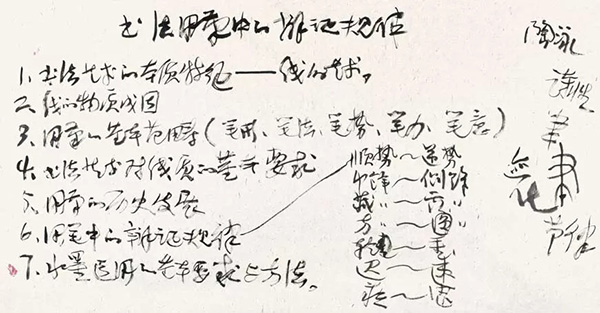 书法用笔中的辩证规律
1. 书法艺术的本质特征——线的艺术
2. 线的物质成因
3. 用笔的基本范围(笔形、笔法、笔势、笔力、笔意)
4. 书法艺术对线质的基本要求
5. 用笔的历史发展
6. 用笔中的辩证规律
7. 水墨运用的基本要求与方法。
顺势～逆势
中锋～侧锋
藏〃～露〃
方～圆
轻～重
迟～速
陶泳